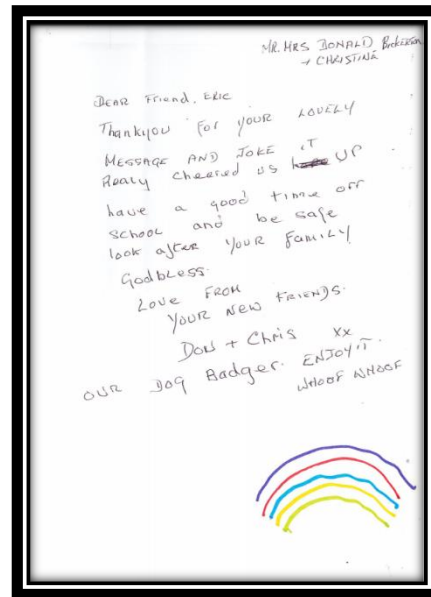 MR. MRS DONALD
+ CHRISTINA
DEAR Friend. ERIC
Thankyou For YOUR LOVELY
MESSAGE AND JOKE IT
Realy cheered us UP
have a good time off
School and be safe
look after YOUR FAMILY
Godbless.
LOVE FROM
YOUR NEW FRIENDS.
DON + Chris xx
OUR DOG Badger. ENJOY IT.
WHOOF WHOOF